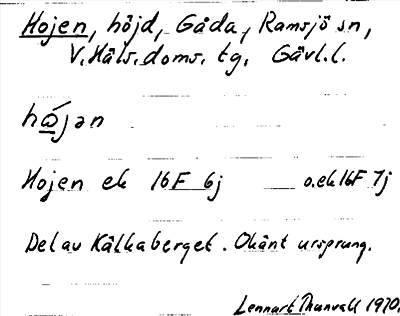 Hojen, höjd, Gåda, Ramsjö sn,
V. Häls. doms. tg. Gävl. l.
hώ̲jən
Hojen ek 16F 6j o.ek 16F 7j
Del av Kälkaberget. Okänt ursprung.
Lennart Thunvall 1970.